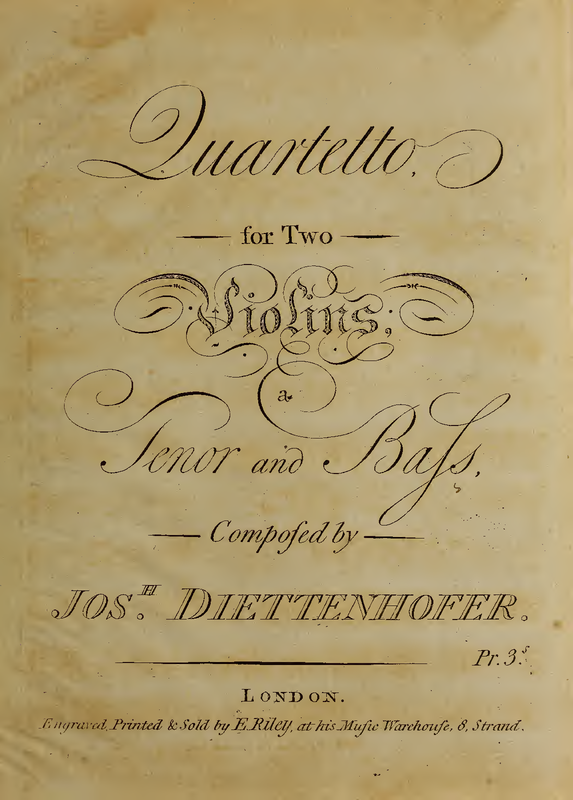 Quartetto,
for Two
Violins;
a
Tenor and Baſs,
Compoſed by
JOS.H DIETTENHOFER.
Pr. 3.s
LONDON.
Engraved, Printed & Sold by E. Riley, at his Muſic Warehouſe, 8, Strand.